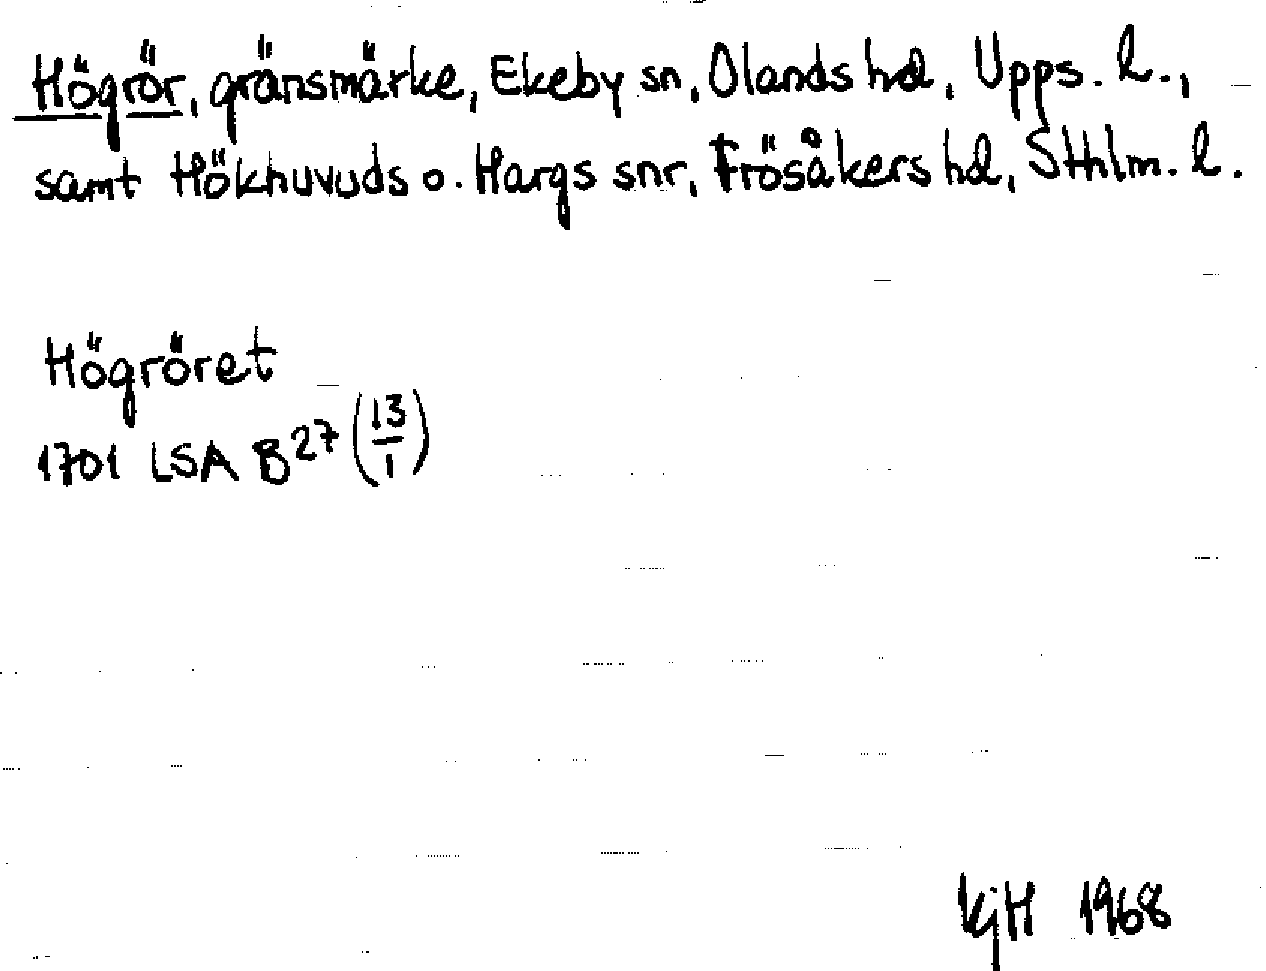 Högrör, gränsmärke, Ekeby sn, Olands hd, Upps. l.,
samt Hökhuvuds o. Hargs snr, Frösåkers hd, Sthlm. l.
Högröret
1701 LSA B27 (13/1)
KjH 1968